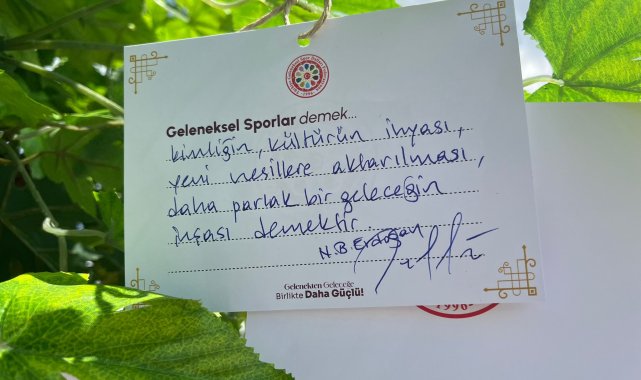 Geleneksel Sporlar demek...
kimliğin, kültürün ihyası,
yeni nesillere aktarılması,
daha parlak bir geleceğin
inşası demektir.
N.B. Erdoğan
Gelenekten Geleceğe
Birlikte Daha Güçlü!
1996